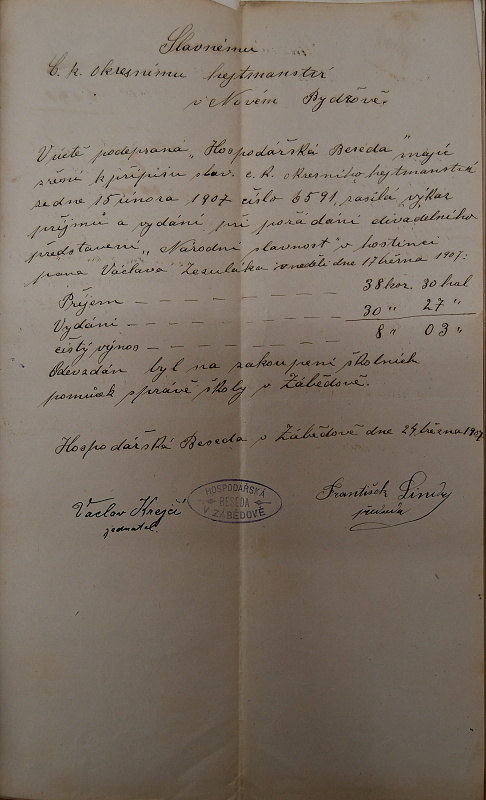 Slavnému
C. k. okresnímu hejtmanství
v Novém Bydžově.
V úctě podepsaná „Hospodářská Beseda" majíc
zření k přípisu slav. c. k. okresního hejtmanství
ze dne 15 února 1907 číslo 6591, zasílá výkaz
příjmů a vydání při pořádání divadelního
představení „Národní slavnost" v hostinci
pana Václava Zesuláka v neděli dne 17 března 1907:
Příjem — — — — — 38 kor. 30 hal
Vydání — — — — — 30 " 27 "
čistý výnos — — — — — 8 " 03 "
Odevzdán byl na zakoupení školních
pomůcek správě školy v Zábědově.
Hospodářská Beseda v Zábědově dne 24 března 1907
Václav Krejčí
jednatel.
HOSPODÁŘSKÁ
BESEDA
V ZÁBĚDOVĚ
František
předseda